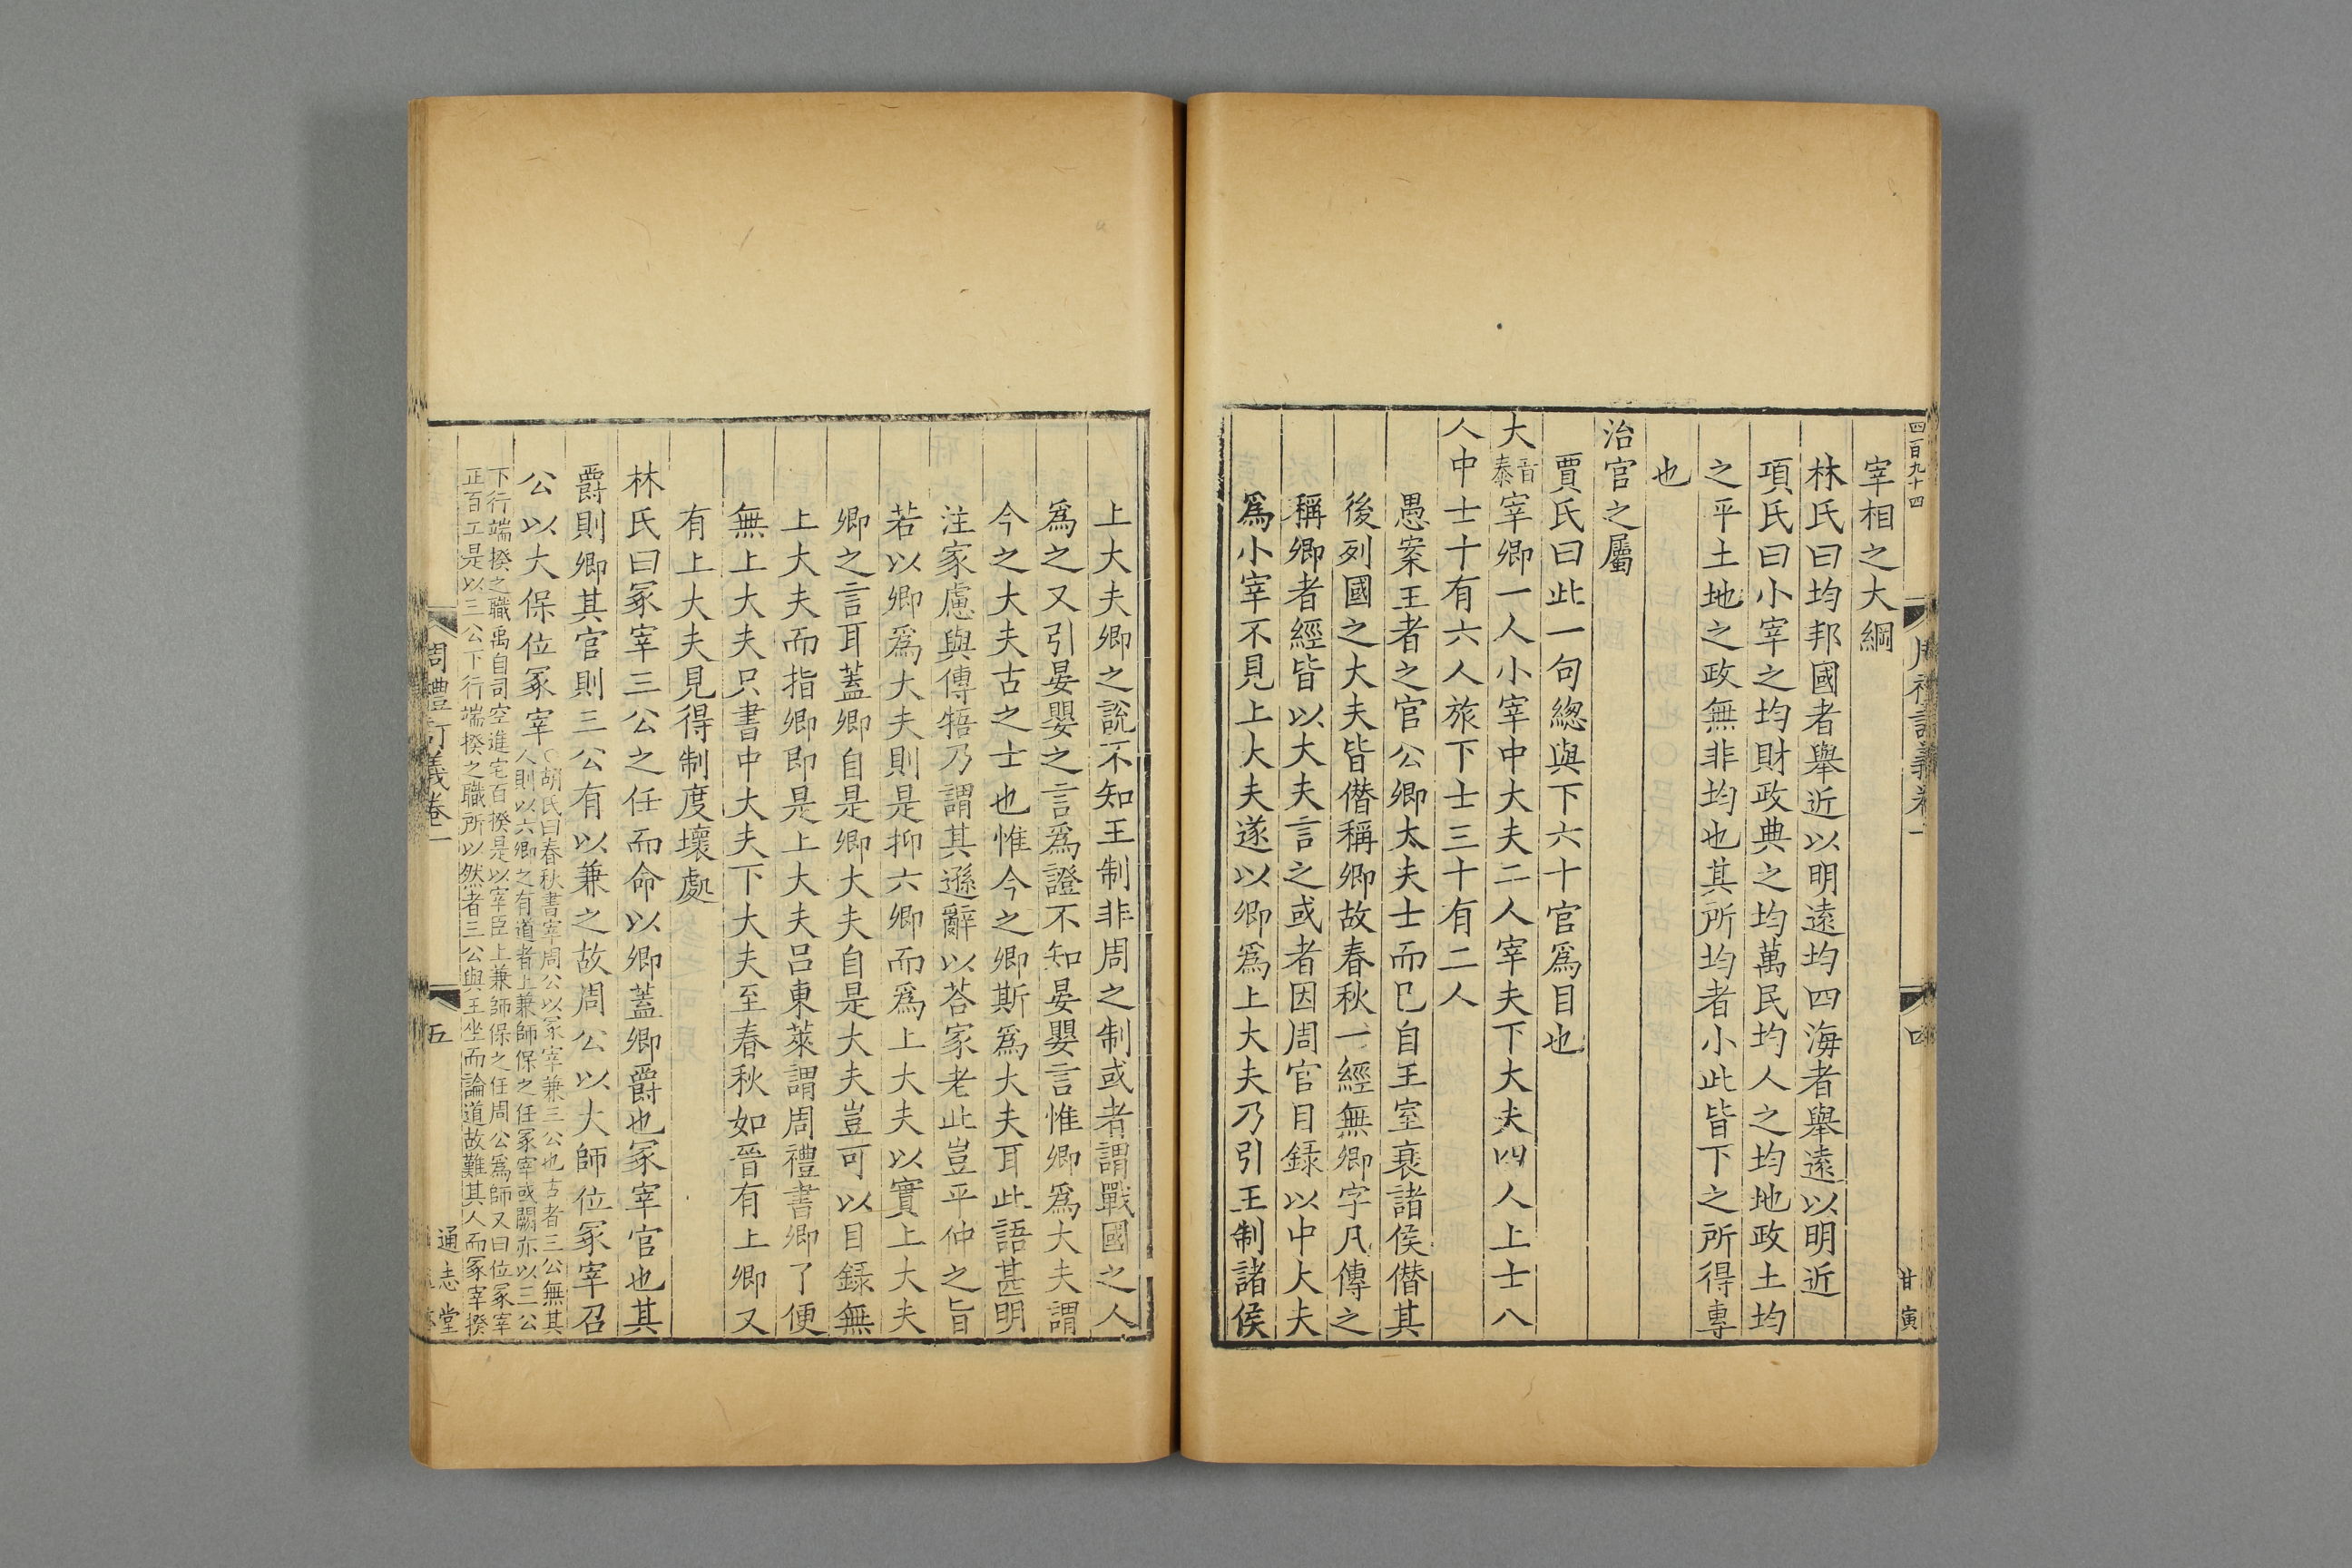 四百九十四
宰相之大綱
林氏曰均邦國者舉近以明遠均四海者舉遠以明近
項氏曰小宰之均財政典之均萬民均人之均地政土均
之平土地之政無非均也其所均者小此皆下之所得專
也
治官之屬
賈氏曰此一句緫與下六十官爲目也
大音泰宰卿一人小宰中大夫二人宰夫下大夫四人上士八
人中士十有六人旅下士三十有二人
愚案王者之官公卿大夫士而已自王室衰諸侯僭其
後列國之大夫皆僭稱卿故春秋一經無卿字凡傳之
稱卿者經皆以大夫言之或者因周官目録以中大夫
爲小宰不見上大夫遂以卿爲上大夫乃引王制諸侯
上大夫卿之說不知王制非周之制或者謂戰國之人
爲之又引晏嬰之言爲證不知晏嬰言惟卿爲大夫謂
今之大夫古之士也惟今之卿斯爲大夫耳此語甚明
注家慮與傳牾乃謂其遜辭以荅家老此豈平仲之旨
若以卿爲大夫則是抑六卿而爲上大夫以實上大夫
卿之言耳蓋卿自是卿大夫自是大夫豈可以目録無
上大夫而指卿即是上大夫呂東萊謂周禮書卿了便
無上大夫只書中大夫下大夫至春秋如晉有上卿又
有上大夫見得制度壞處
林氏曰冢宰三公之任而命以卿蓋卿爵也冢宰官也其
爵則卿其官則三公有以兼之故周公以大師位冢宰召
公以大保位冢宰○胡氏曰春秋書宰周公以冢宰兼三公也古者三公無其
人則以六卿之有道者上兼師保之任冢宰或闕亦以三公
下行端揆之職禹自司空進宅百揆是以宰臣上兼師保之任周公爲師又曰位冢宰
正百工是以三公下行端揆之職所以然者三公與王坐而論道故難其人而冢宰揆
周禮訂義卷一
五
通志堂